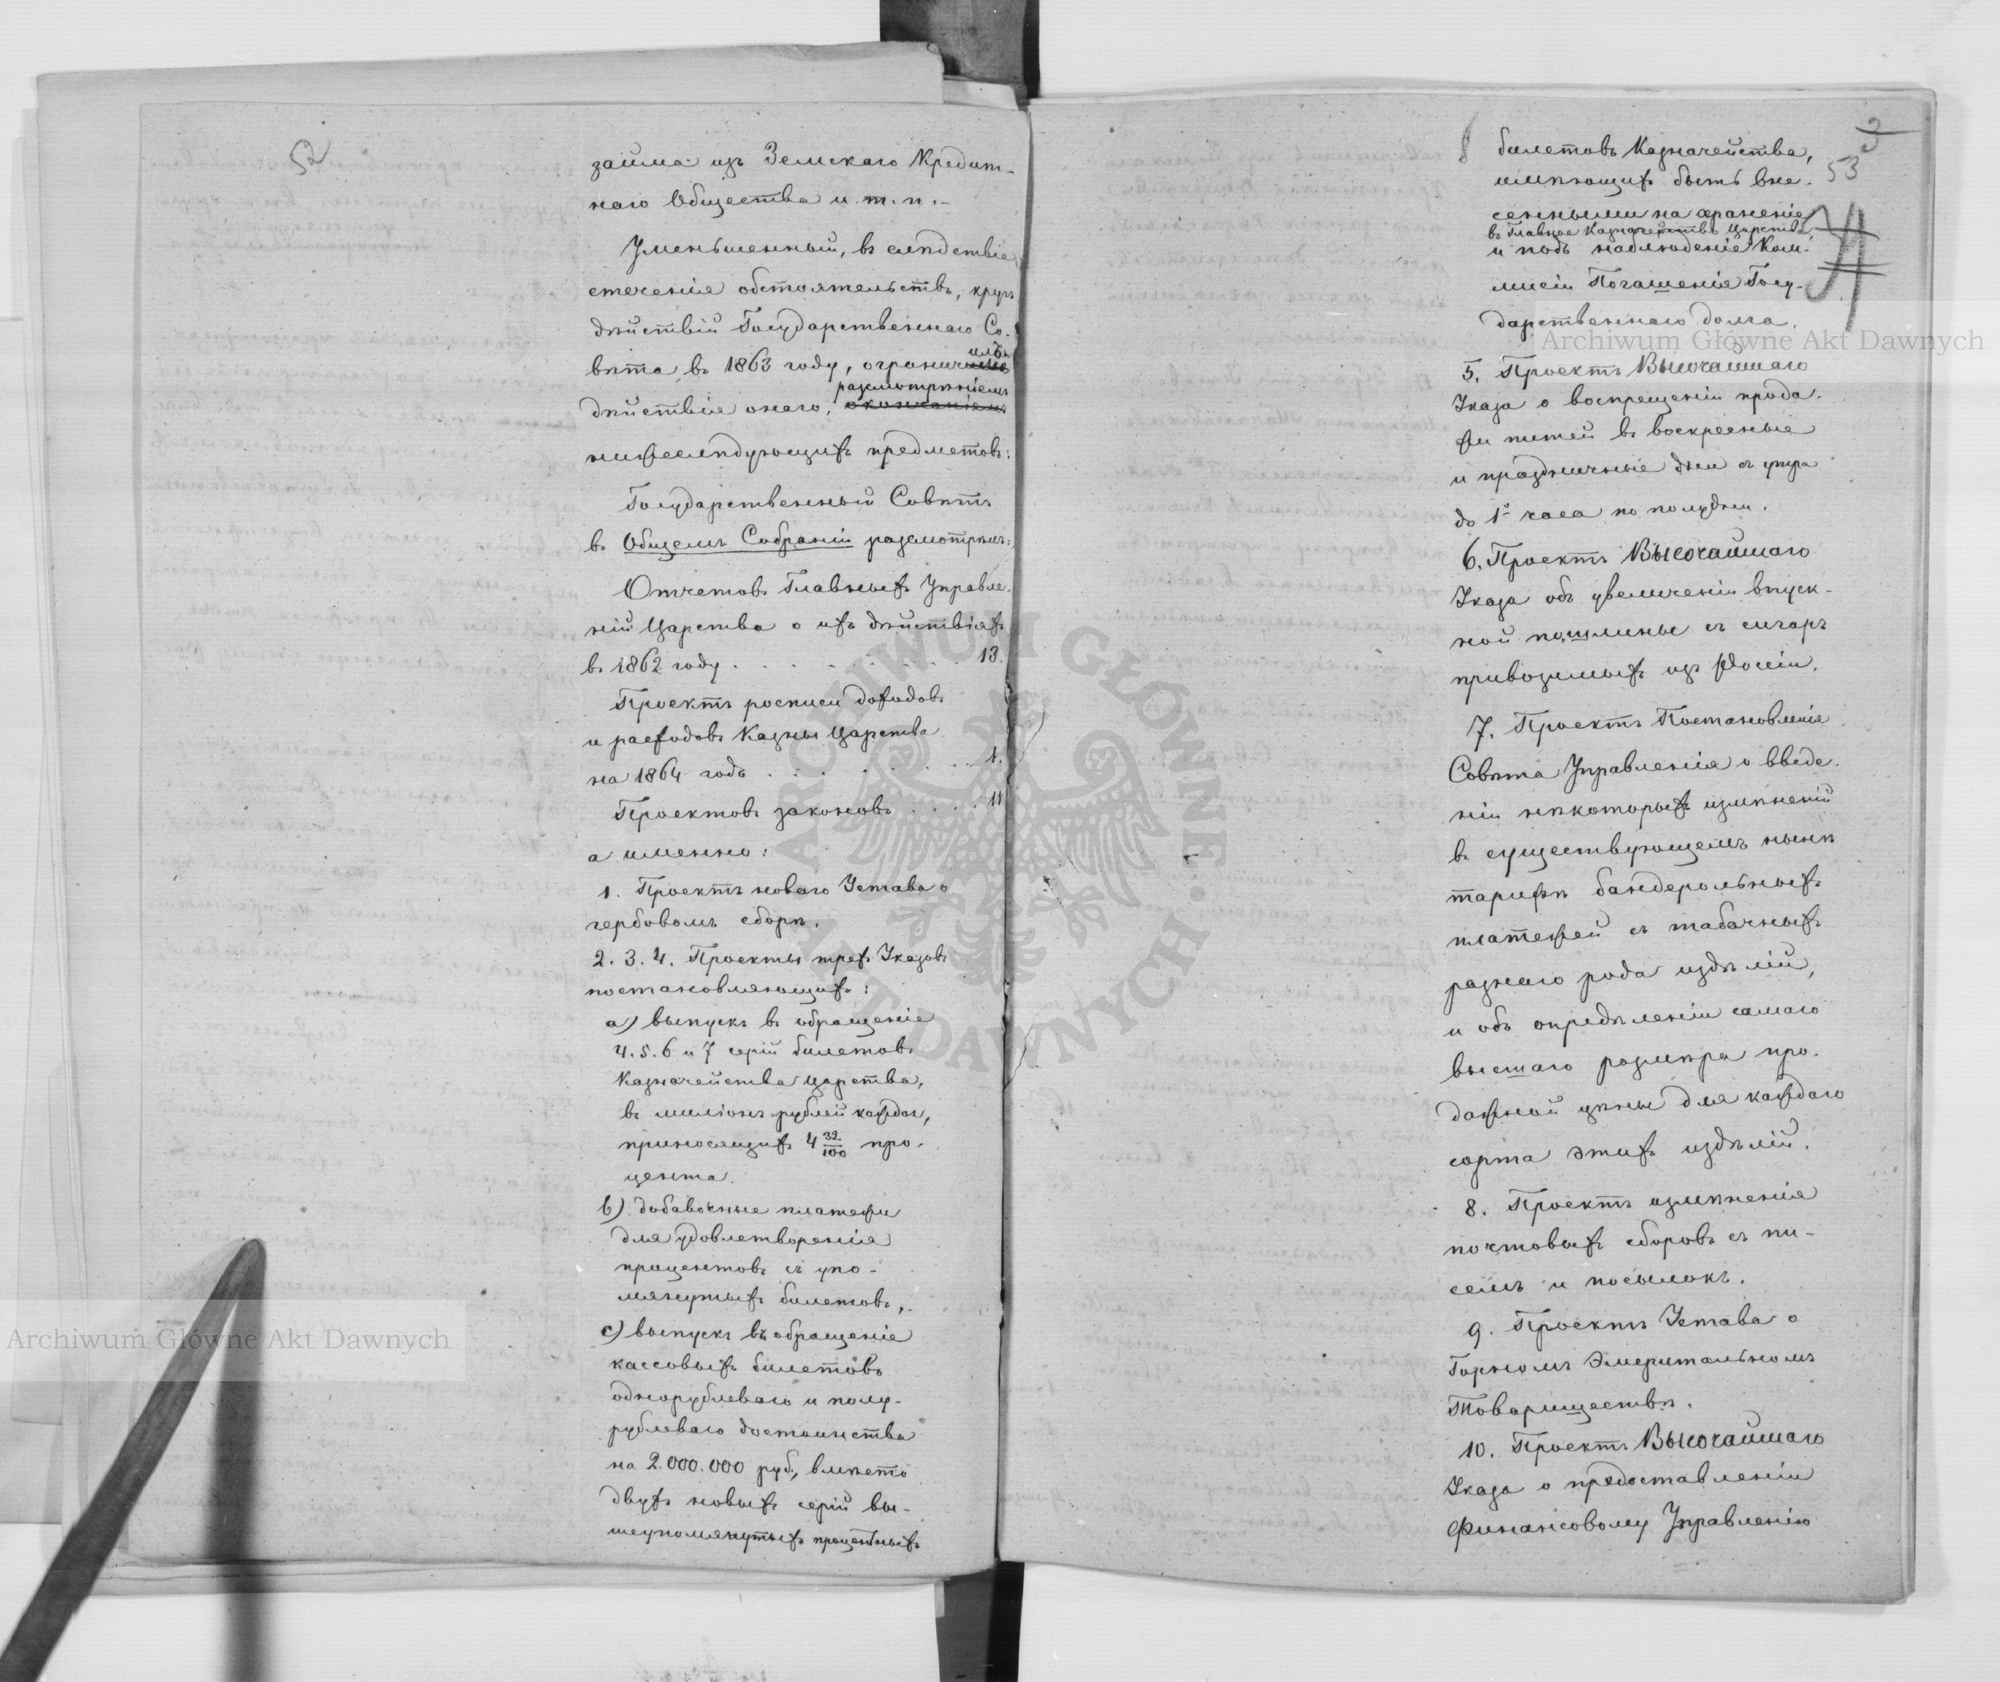 52
займа изъ Земскаго Кредит-
наго Общества и т. п.-
Уменьшенный, въ слѣдствіе
стеченія обстоятельствъ, кругъ
дѣйствій Государственнаго Со-
вѣта въ 1863 году, ограничилъ
дѣйствія онаго, разсмотрѣніемъ
нижеслѣдующихъ предметовъ:
Государственный Совѣтъ
въ Общемъ Собраніи разсмотрѣлъ:
Отчетовъ Главныхъ Управле-
ній Царства о ихъ дѣйствіяхъ
въ 1862 году . . . . . . . . 13.
Проектъ росписи доходовъ
и расходовъ Казны Царства
на 1864 годъ . . . . . . . . 1.
Проектовъ законовъ . . . . 11
а именно:
1. Проектъ новаго Устава о
гербовомъ сборѣ.
2. 3. 4. Проекты трехъ Указовъ
постановляющихъ:
а) выпускъ въ обращеніе
4. 5. 6 и 7 серій билетовъ
Казначейства Царства,
въ миліонъ рублей каждая,
приносящихъ 4 32/100 про-
цента.
b) добавочные платежи
для удовлетворенія
процентовъ съ упо-
мянутыхъ билетовъ,
c) выпускъ въ обращеніе
кассовыхъ билетовъ
однорублеваго и полу-
рублеваго достоинства
на 2.000.000 руб., вмѣсто
двухъ новыхъ серій вы-
шеупомянутыхъ процентныхъ
3
53
билетовъ Казначейства,
имѣющихъ быть вне-
сенными на храненіе
въ Главное Казначейство Царства
и подъ наблюденіе Ком-
мисіи Погашенія Госу-
дарственнаго долга.
5. Проектъ Высочайшаго
Указа о воспрещеніи прода-
жи питей въ воскресные
и праздничные дни съ утра
до 1го часа по полудни.
6. Проектъ Высочайшаго
Указа объ увеличеніи впуск-
ной пошлины съ сигаръ
привозимыхъ изъ Россіи.
7. Проектъ Постановленія
Совѣта Управленія о введе-
ніи нѣкоторыхъ измѣненій
въ существующемъ нынѣ
тарифѣ бандерольныхъ
платежей съ табачныхъ
разнаго рода издѣлій,
и объ опредѣленіи самаго
высшаго размѣра про-
дажной цѣны для каждаго
сорта этихъ издѣлій.
8. Проектъ измѣненія
почтовыхъ сборовъ съ пи-
семъ и посылокъ.
9. Проектъ Устава о
Горномъ Эмеритальномъ
Товариществѣ.
10. Проектъ Высочайшаго
Указа о предоставленіи
Финансовому Управленію
Archiwum Główne Akt Dawnych
Archiwum Główne Akt Dawnych
ARCHIWUM GŁÓWNE AKT DAWNYCH